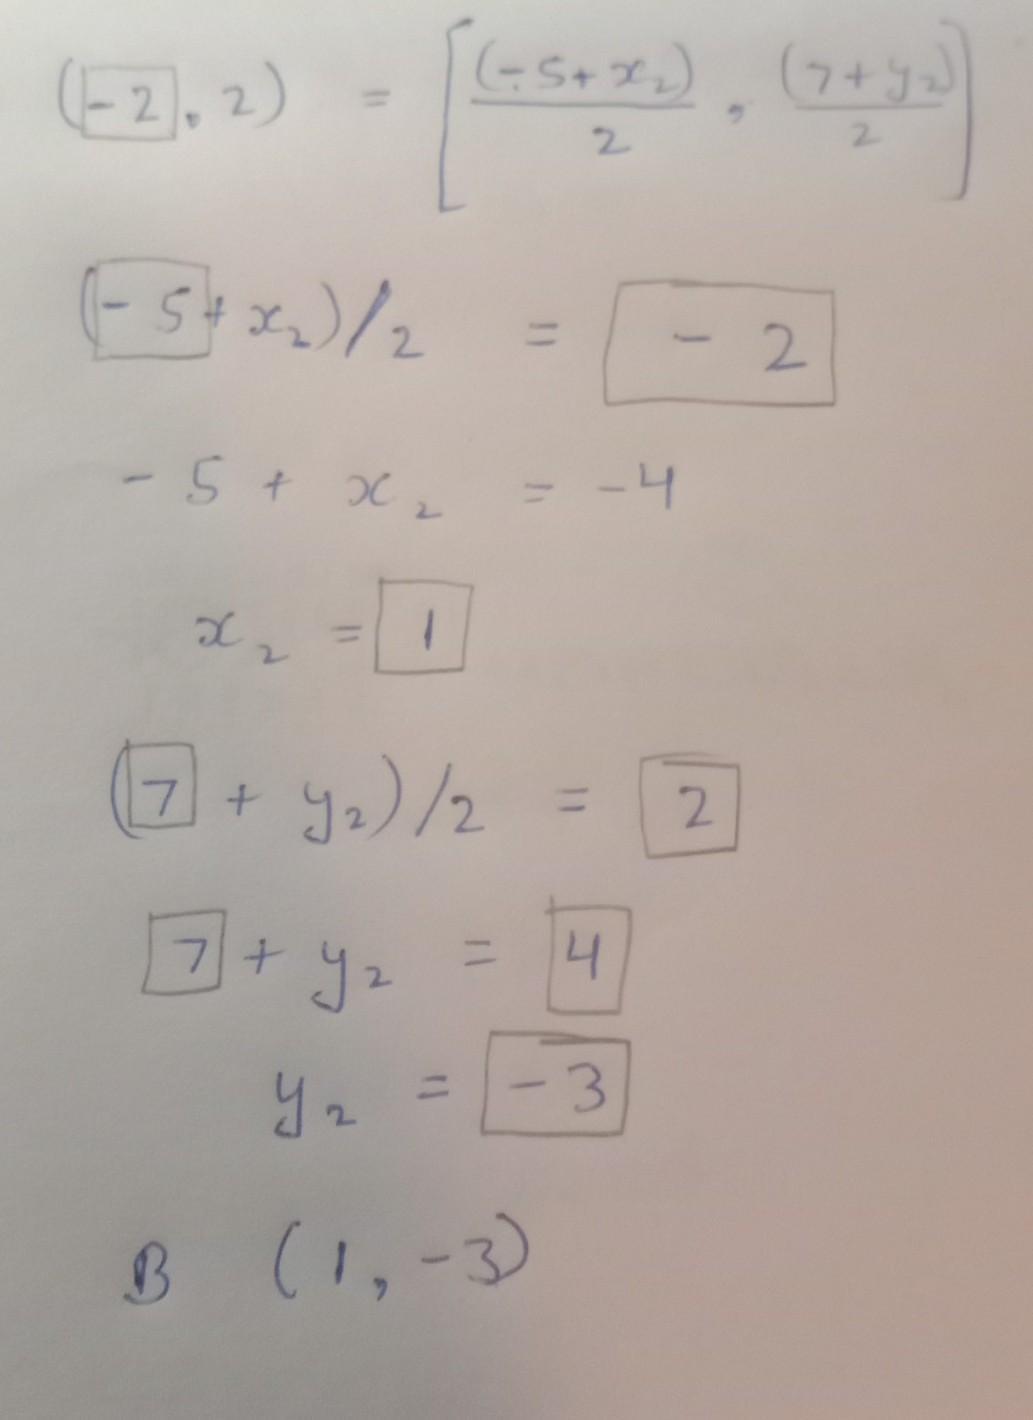 (-2, 2) = [(-5+x₂)/2, (7+y₂)/2]
(-5+x₂)/2 = -2
-5 + x₂ = -4
x₂ = 1
(7 + y₂)/2 = 2
7 + y₂ = 4
y₂ = -3
B (1, -3)